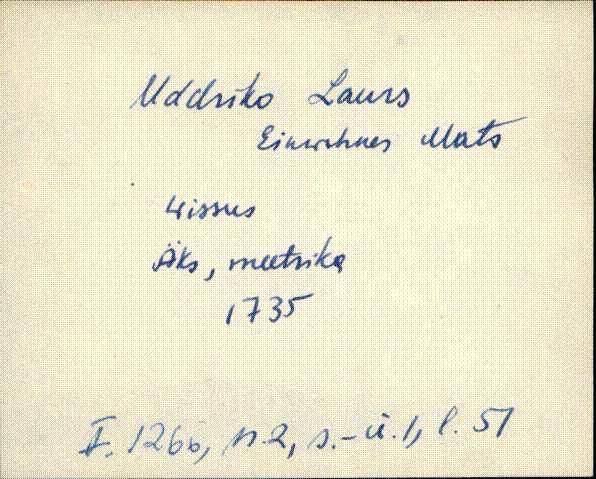 Uddriko Laurs
Einwohner Mats
Wissus
Äks, meetrika
1735
F. 1266, n.2, s.-ü.1, l. 51